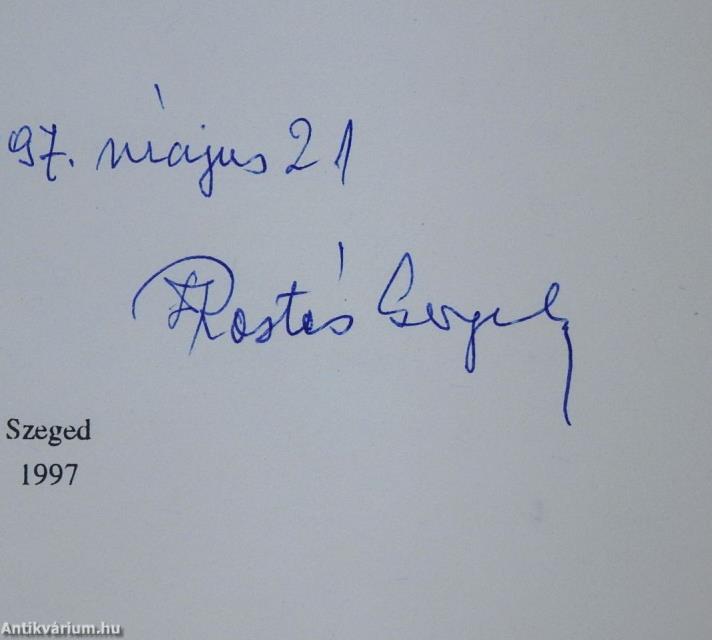 97. május 21
Rostás Gergely
Szeged
1997
Antikvárium.hu